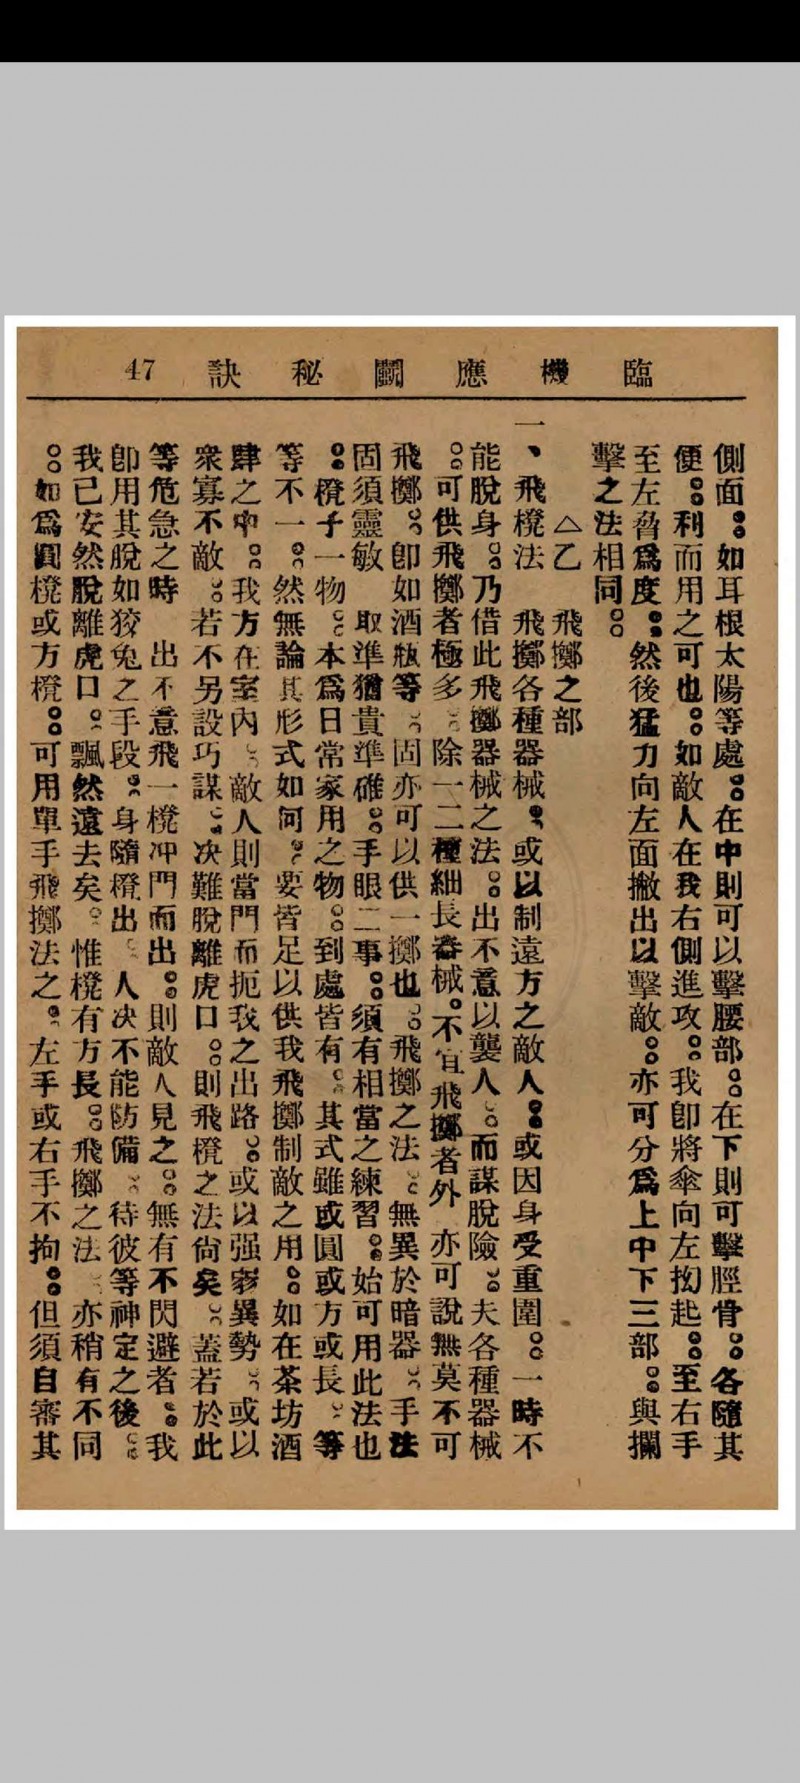 臨機應鬭秘訣 47
側面。如耳根太陽等處。在中則可以擊腰部。在下則可擊脛骨。各隨其
便。利而用之可也。如敵人在我右側進攻。我卽將傘向左抝起。至右手
至左脅爲度。然後猛力向左面撇出以擊敵。亦可分爲上中下三部。與攔
擊之法相同。
△乙 飛擲之部
一、飛櫈法 飛擲各種器械。或以制遠方之敵人。或因身受重圍。一時不
能脫身。乃借此飛擲器械之法。出不意以襲人。而謀脫險。夫各種器械
。可供飛擲者極多。除一二種細長器械。不宜飛擲者外 亦可說無莫不可
飛擲。卽如酒瓶等。固亦可以供一擲也。飛擲之法。無異於暗器。手法
固須靈敏 取準猶貴準確。手眼二事。須有相當之練習。始可用此法也
。櫈子一物。本爲日常家用之物。到處皆有。其式雖或圓或方或長。等
等不一。然無論其形式如何。要皆足以供我飛擲制敵之用。如在茶坊酒
肆之中。我方在室內。敵人則當門而扼我之出路。或以强寡異勢。或以
衆寡不敵。若不另設巧謀。决難脫離虎口。則飛櫈之法尙矣。蓋若於此
等危急之時 出不意飛一櫈冲門而出。則敵人見之。無有不閃避者。我
卽用其脫如狡兔之手段。身隨櫈出。人决不能防備。待彼等神定之後。
我已安然脫離虎口。飄然遠去矣。惟櫈有方長。飛擲之法。亦稍有不同
。如爲圓櫈或方櫈。可用單手飛擲法之。左手或右手不拘。但須自審其